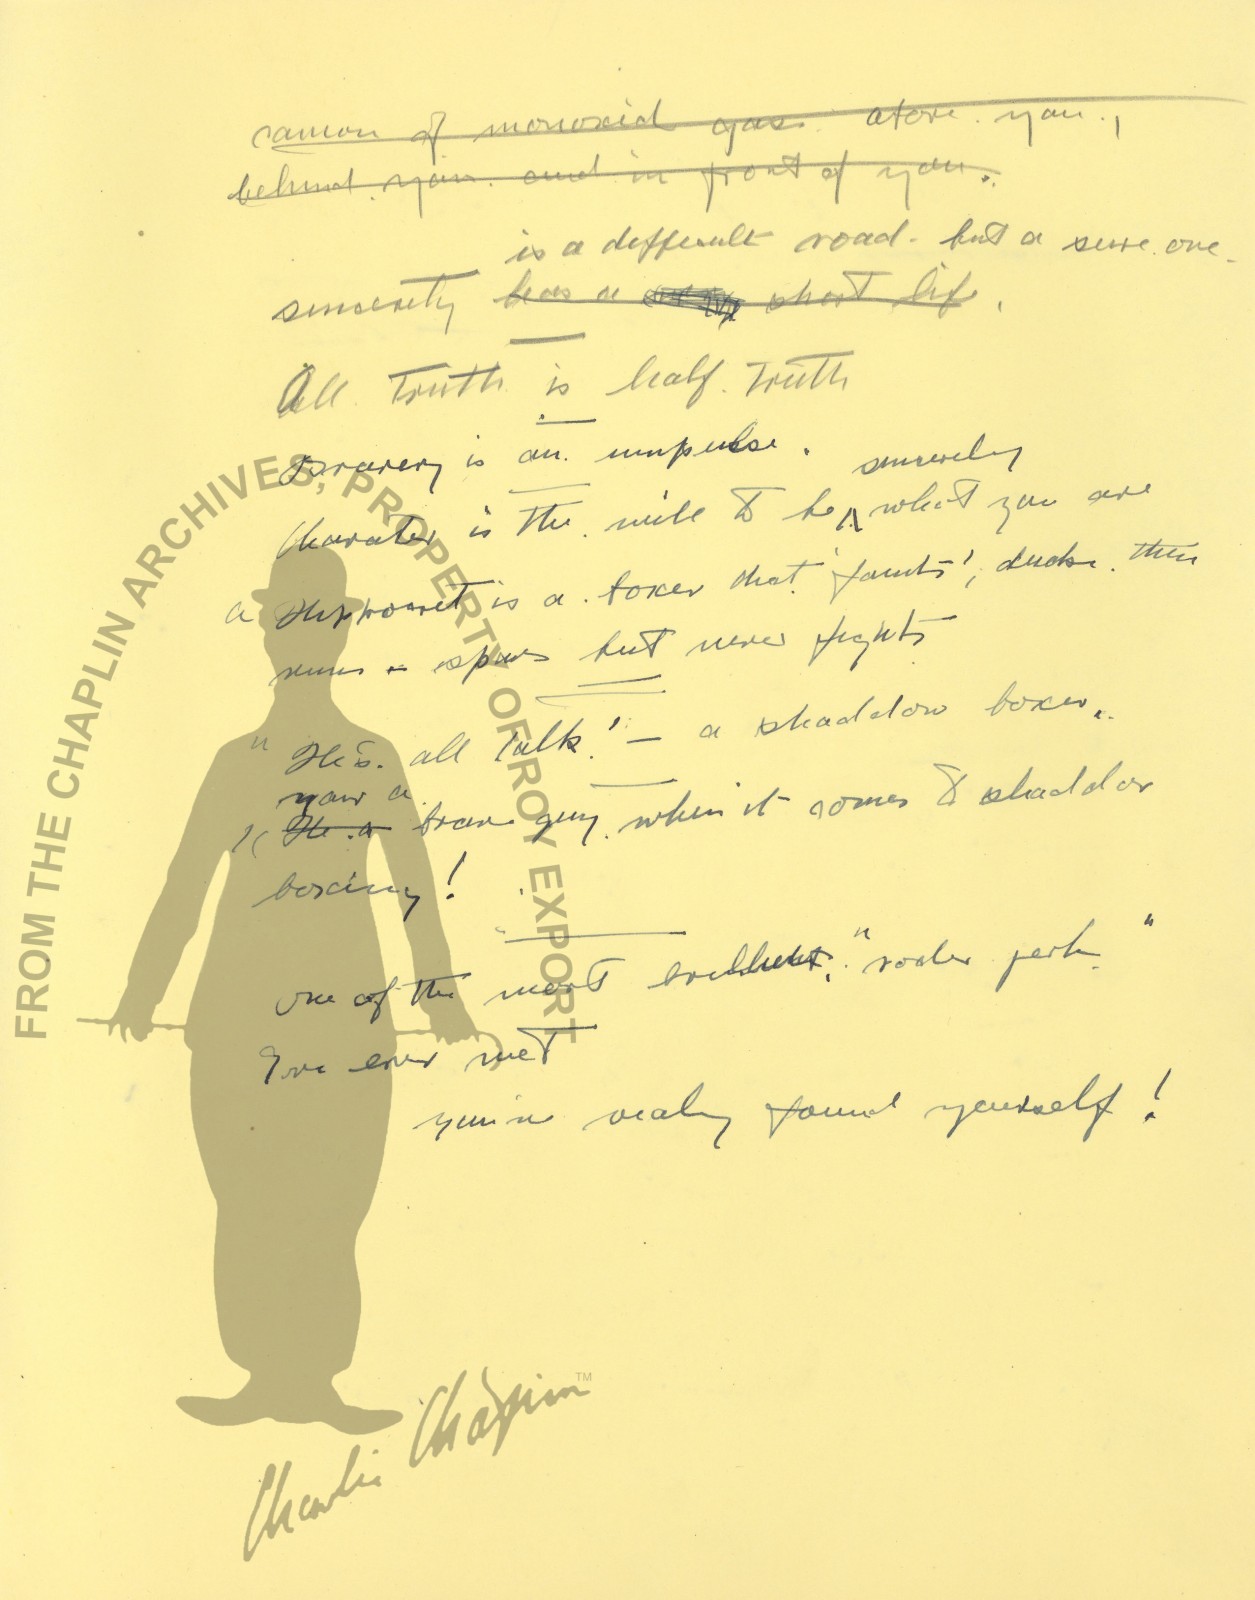 canon of monoxid gas above you,
behind you and in front of you.
is a difficult road. but a sure one.
sincerety has a short life.
All Truth is half Truth
Bravery is an impulse.
sincerely
Charater is the will to be what you are
a is a boxer that 'faints', ducks then
runs + spars but never fights
"He's all Talk!" — a shaddow boxer.
your a
"He a brave guy when it comes to shaddow
boxing!
one of the most brillient, "soda jerk"
I've ever met
you've realy found yourself!
FROM THE CHAPLIN ARCHIVES, PROPERTY OF ROY EXPORT
Charlie Chaplin™